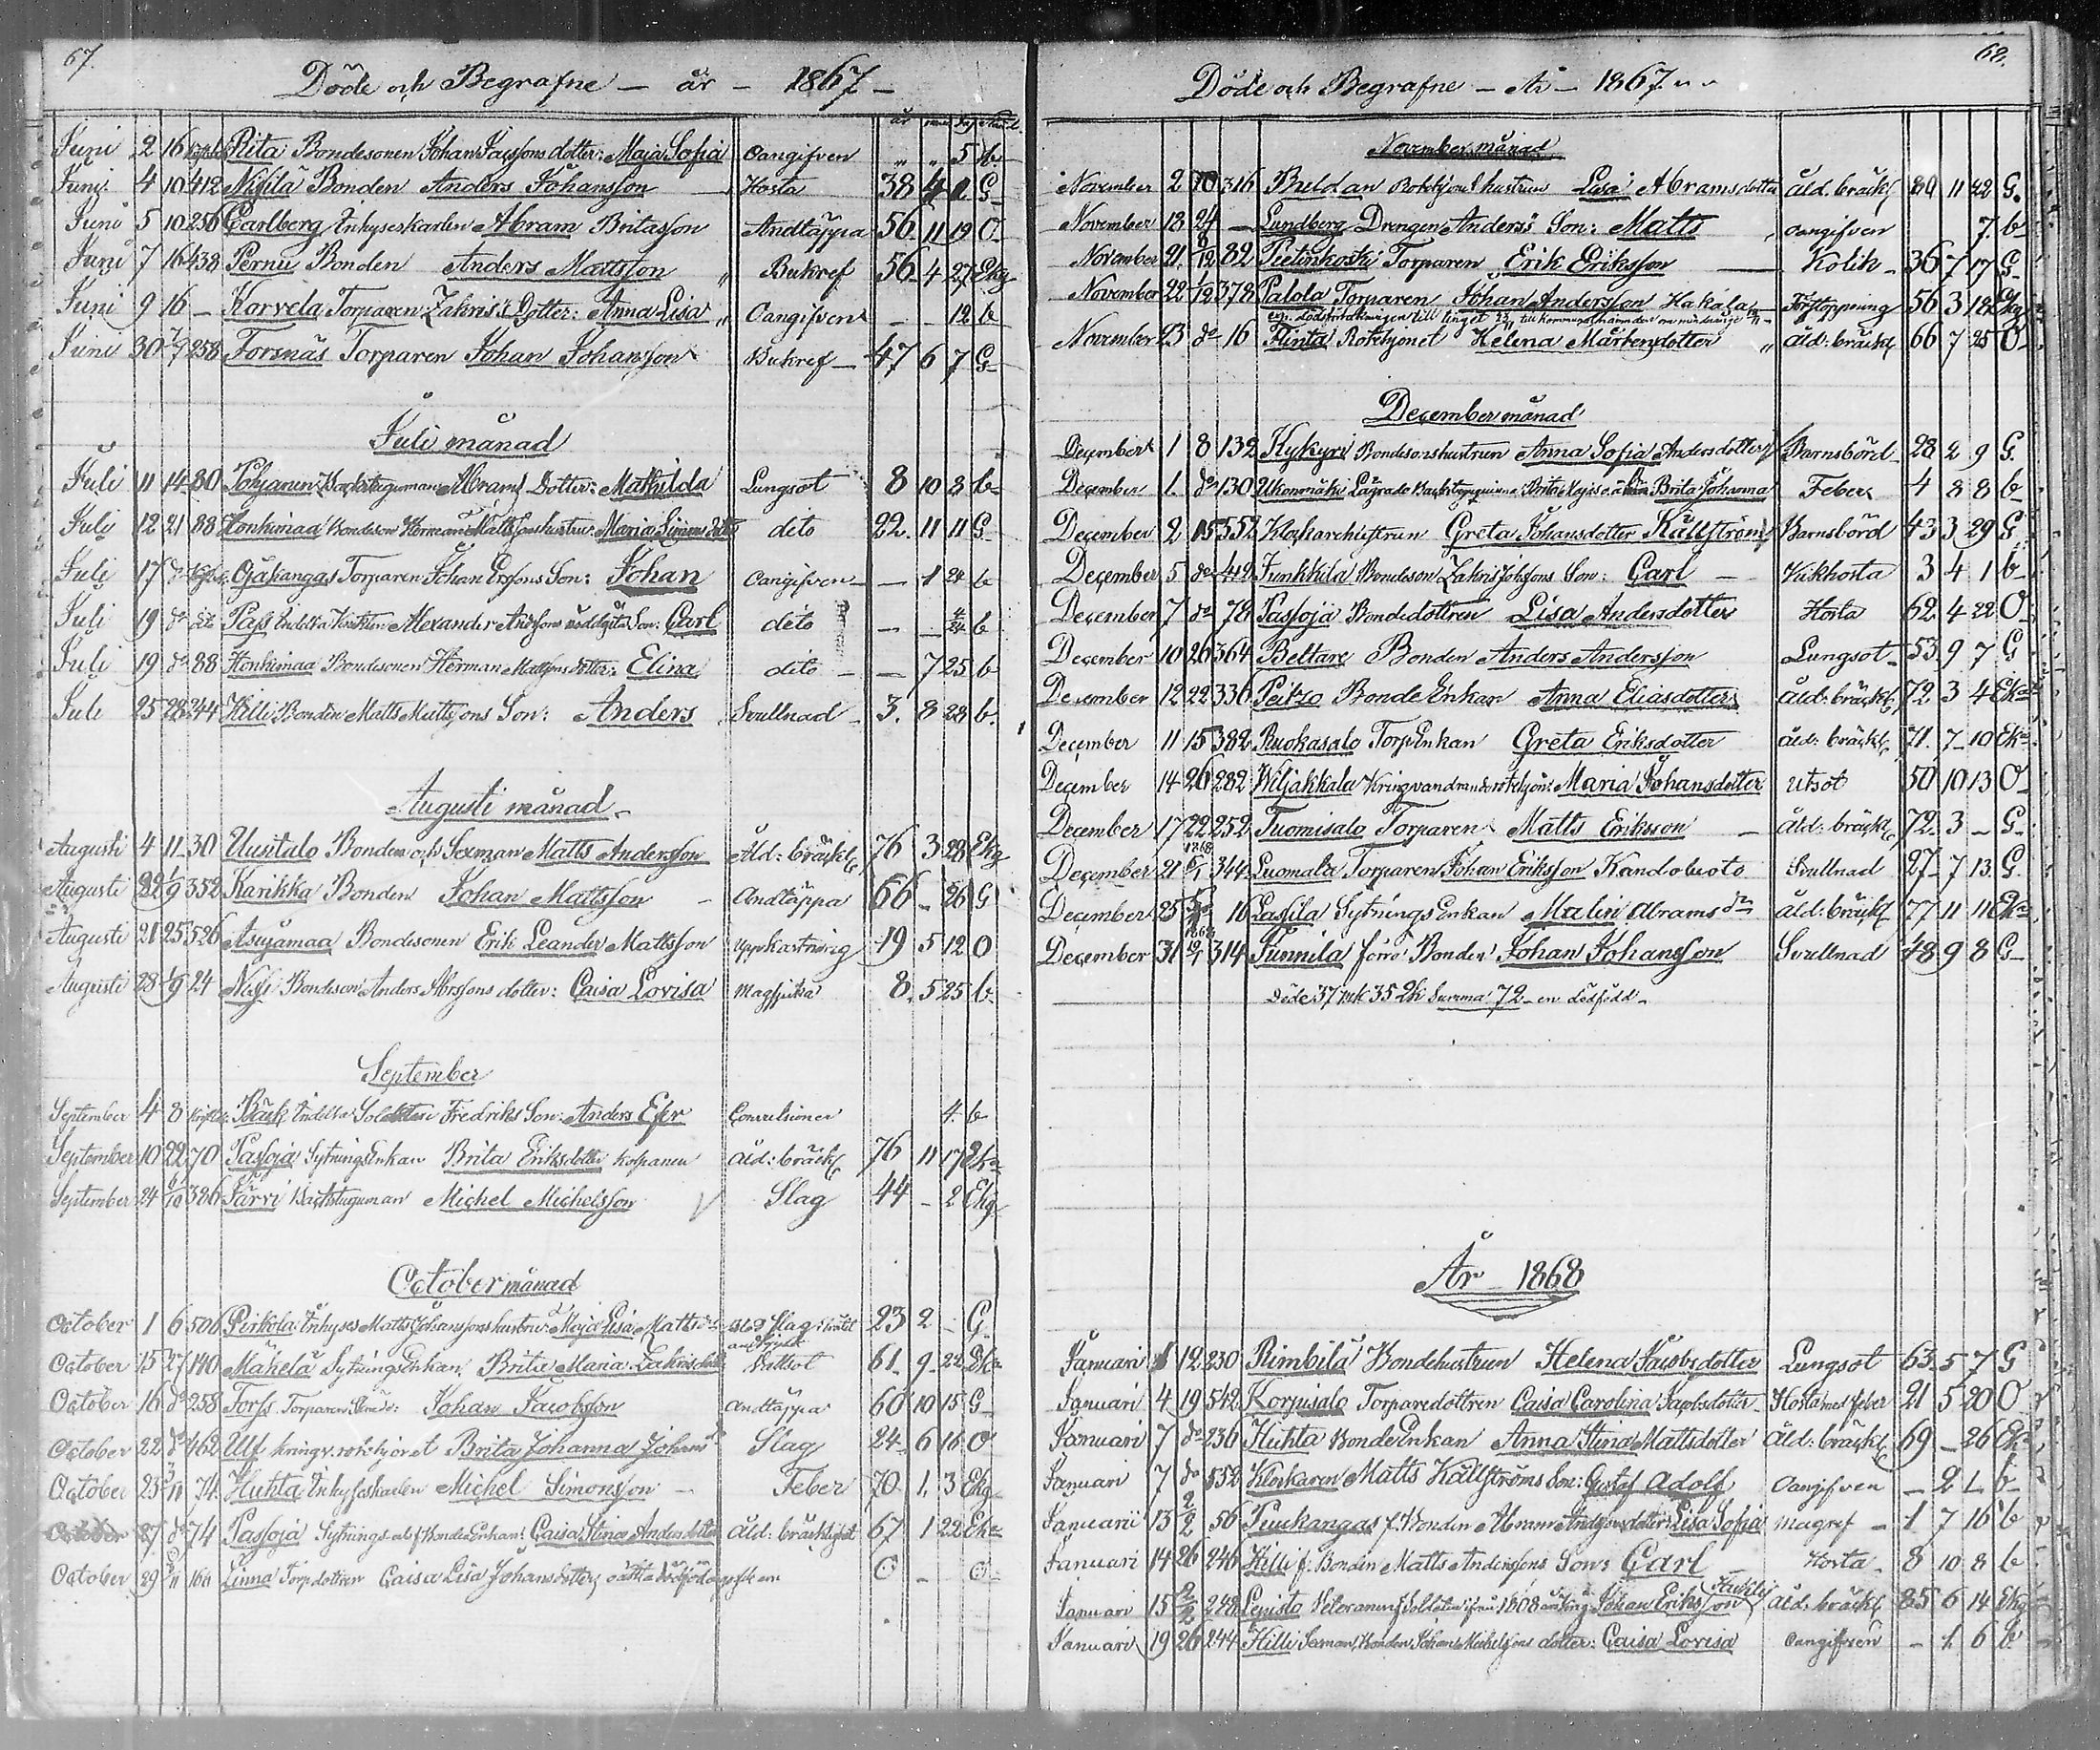 67.
Döde och Begrafne – år – 1867 –
år mån dag
Juni 2 16 Rita Bondesonen Johan Jacssons dotter: Maja Sofia Oangifven " " 5 b.
Juni 4 10 412 Niſsilä Bonden Anders Johansson Hosta 38 4 G
Juni 5 10 256 Carlberg Inhyseskarlen Abram Britasson Andtäppa 56 11 19 O.
Juni 7 16 438 Pernu Bonden Anders Mattsson " Bukref 56 4 27 Ekg
Juni 9 16 – Korvela Torparen Zakris's Dotter: Anna Lisa " Oangifven – – 12 b
Juni 30 7/9 258 Forsnäs Torparen Johan Johansson Bukref – 47 6 7 G
Juli månad
Juli 11 14 80 Pohjanen Backstuguman Abrams Dotter: Mathilda Lungsot 8 10 8 b
Juli 12 21 88 Honkimaa Bondeson Herman Mattssons hustru: Maria Simonsdotter dito 22. 11 11 G
Juli 17 do Ojakangas Torparen Johan Erssons Son: Johan Oangifven – – 1 24 b
Juli 19 do Pass Indelta Alexander Son: Carl dito – – b
Juli 19 do 88 Honkimaa Bondesonen Herman Mattssons dotter: Elina dito – – 7 25 b
Juli 25 28 244 Hilli Bonden Matts Mattssons Son: Anders Svullnad 3. 8 28 b.
Augusti månad –
Augusti 4 11 30 Uusitalo Bonden och Sexman Matts Andersson Åld: bräckl 76 3 28 Ekg
Augusti 22 1/9 352 Karikka Bonden Johan Mattsson – Andtäppa 66 – 26 G
Augusti 21 25 526 Asujamaa Bondesonen Erik Leander Mattsson Uppkastning 19 5 12 O
Augusti 28 1/9 24 Bondeson Anders Abrssons dotter: Caisa Lovisa Magsjuka 8. 5 25 b.
September
September 4 8 Bäck Indelta Soldaten Fredriks Son: Anders Convulsioner 4. b
September 10 22 70 Passoja Sytnings Enkan Brita Eriksdotter Åld: bräckl 76 11 17 Eka
September 24 386 Järvi Backstuguman Michel Michelsson Slag 44 – 2 Ekg
October månad
October 1 6 506 Pirkola Inhyses Matts Johanssons hustru Maja Lisa Slag 23 2 – G
October 15 27 140 Mäkelä Sytnings Enkan Brita Maria Zakrisdotter 61 – 9 – 22 Eka
October 16 do 258 Forss Torparen Johan Jacobsson andtäppa 60 10 15 G
October 22 do 462 Ulf kringv. rotehjonet Brita Johanna Johans Slag 24 6 16 O
October 23 3/11 74 Huhta Inhyseskarlen Michel Simonsson – Feber 70 1. 3 Ekg
October 27 do 74 Passoja Sytnings Enkan: Caisa Stina Andersdotter åld: bräcklighet 67 1 22 Eke
October 29 Linna Torpdottren Caisa Lisa Johansdotters oäkta dödfödd
68.
Döde och Begrafne – År – 1867. " "
November månad
November 2 10 316 Buldan Rotehjons hustrun Lisa Abramsdotter åld. bräckl 80 11 22 G.
November 18 24 – Lundberg Drengen Anders's Son: Matts " oangifven 7. b
November 21. 9/12 82 Pietinkoski Torparen Erik Eriksson – Kolik – 36 7 17 G
November 22 1/12 378 Palola Torparen Johan Andersson Hakala – Förstoppning 56 3 18 Ekg
November 23 do 16 Flinta Rotehjonet Helena Mårtensdotter " åld: bräckl 66 7 25 O
December månad
December 1 8 132 Kykyri Bondesonshustrun Anna Sofia Andersdotter Barnsbörd 28 2 9 G.
December 1. do 130 Ukonmäki Brita Johanna Feber 4 8 8 b
December 2 15 552 Klockarehustrun Greta Johansdotter Källström Barnsbörd 43 3 29 G
December 5 do 412 Junkkila Bondeson Zakris Johssons Son: Carl – Kikhosta 3 4 1 b
December 7 do 78 Passoja Bondedottren Lisa Andersdotter Hosta 62 4 22 O
December 10 26 364 Beltare Bonden Anders Andersson Lungsot 53. 9 7 G
December 12 22 336 Peitzo Bonde Enkan Anna Eliasdotter åld: bräckl 72 3 4 Eka
December 11 15 382 Ruokasalo Torp Enkan Greta Eriksdotter åld: bräckl 71. 7 – 10 Eka
December 14 26 282 Wiljakkala Kringvandrande rotehjon: Maria Johansdotter utsot 50 10 13 O
December 17 22 252 Tuomisalo Torparen Matts Eriksson – åld: bräckl 72. 3 – G
December 21 1868 6/1 344 Luomala Torparen Johan Eriksson Kandobusto Svullnad 27 – 7 13. G
December 25 16 Lassila Sytnings Enkan Malin Abrams dr åld: bräckl 77 11 11 Eka
December 31 1868 12/1 314 Junnila förre Bonden Johan Johansson Svullnad 48 9 8 G
Döde 37 mk 35 Qk Summa 72 – en dödfödd –
År – 1868
Januari 1 12 230 Rimbilä Bondehustrun Helena Jacobsdotter Lungsot 63. 5 7 G
Januari 4 19 542 Korpisalo Torparedottren Caisa Carolina Jacobsdotter Hosta med feber 21 5 20 O
Januari 7 do 236 Huhta Bonde Enkan Anna Stina Mattsdotter åld: bräckl 69 – 26 Eka
Januari 7 do 552 Klockaren Matts Källströms Son: Gustaf Adolf Oangifven – 2 1 b
Januari 13 2/2 56 Puukangas f. Bonden Abram Anderssons dotter: Lisa Sofia magref – 1 7 16 b
Januari 14 26 246 Hilli f. Bonden Matts Anderssons Son: Carl – Hosta – 8 10 8 b
Januari 15 2/2 248 Lepistö Veteranen Soldaten ifrån 1808 Johan Eriksson åld: bräckl 85 6 14 Ekg
Januari 19 26 244 Hilli Sexman, Bonden Johan Michelssons dotter: Caisa Lovisa Oangifven – 1. 6 b.